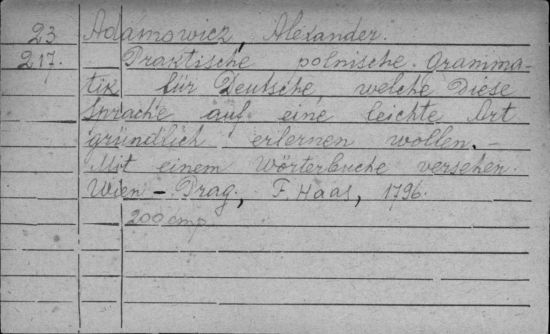 23 Adamowicz, Alexander.
217. — Praktische polnische Gramma-
tik für Deutsche, welche diese
Sprache auf eine leichte Art
gründlich erlernen wollen. —
Mit einem Wörterbuche versehen.
Wien – Prag, F. Haas, 1796.
200 стр.